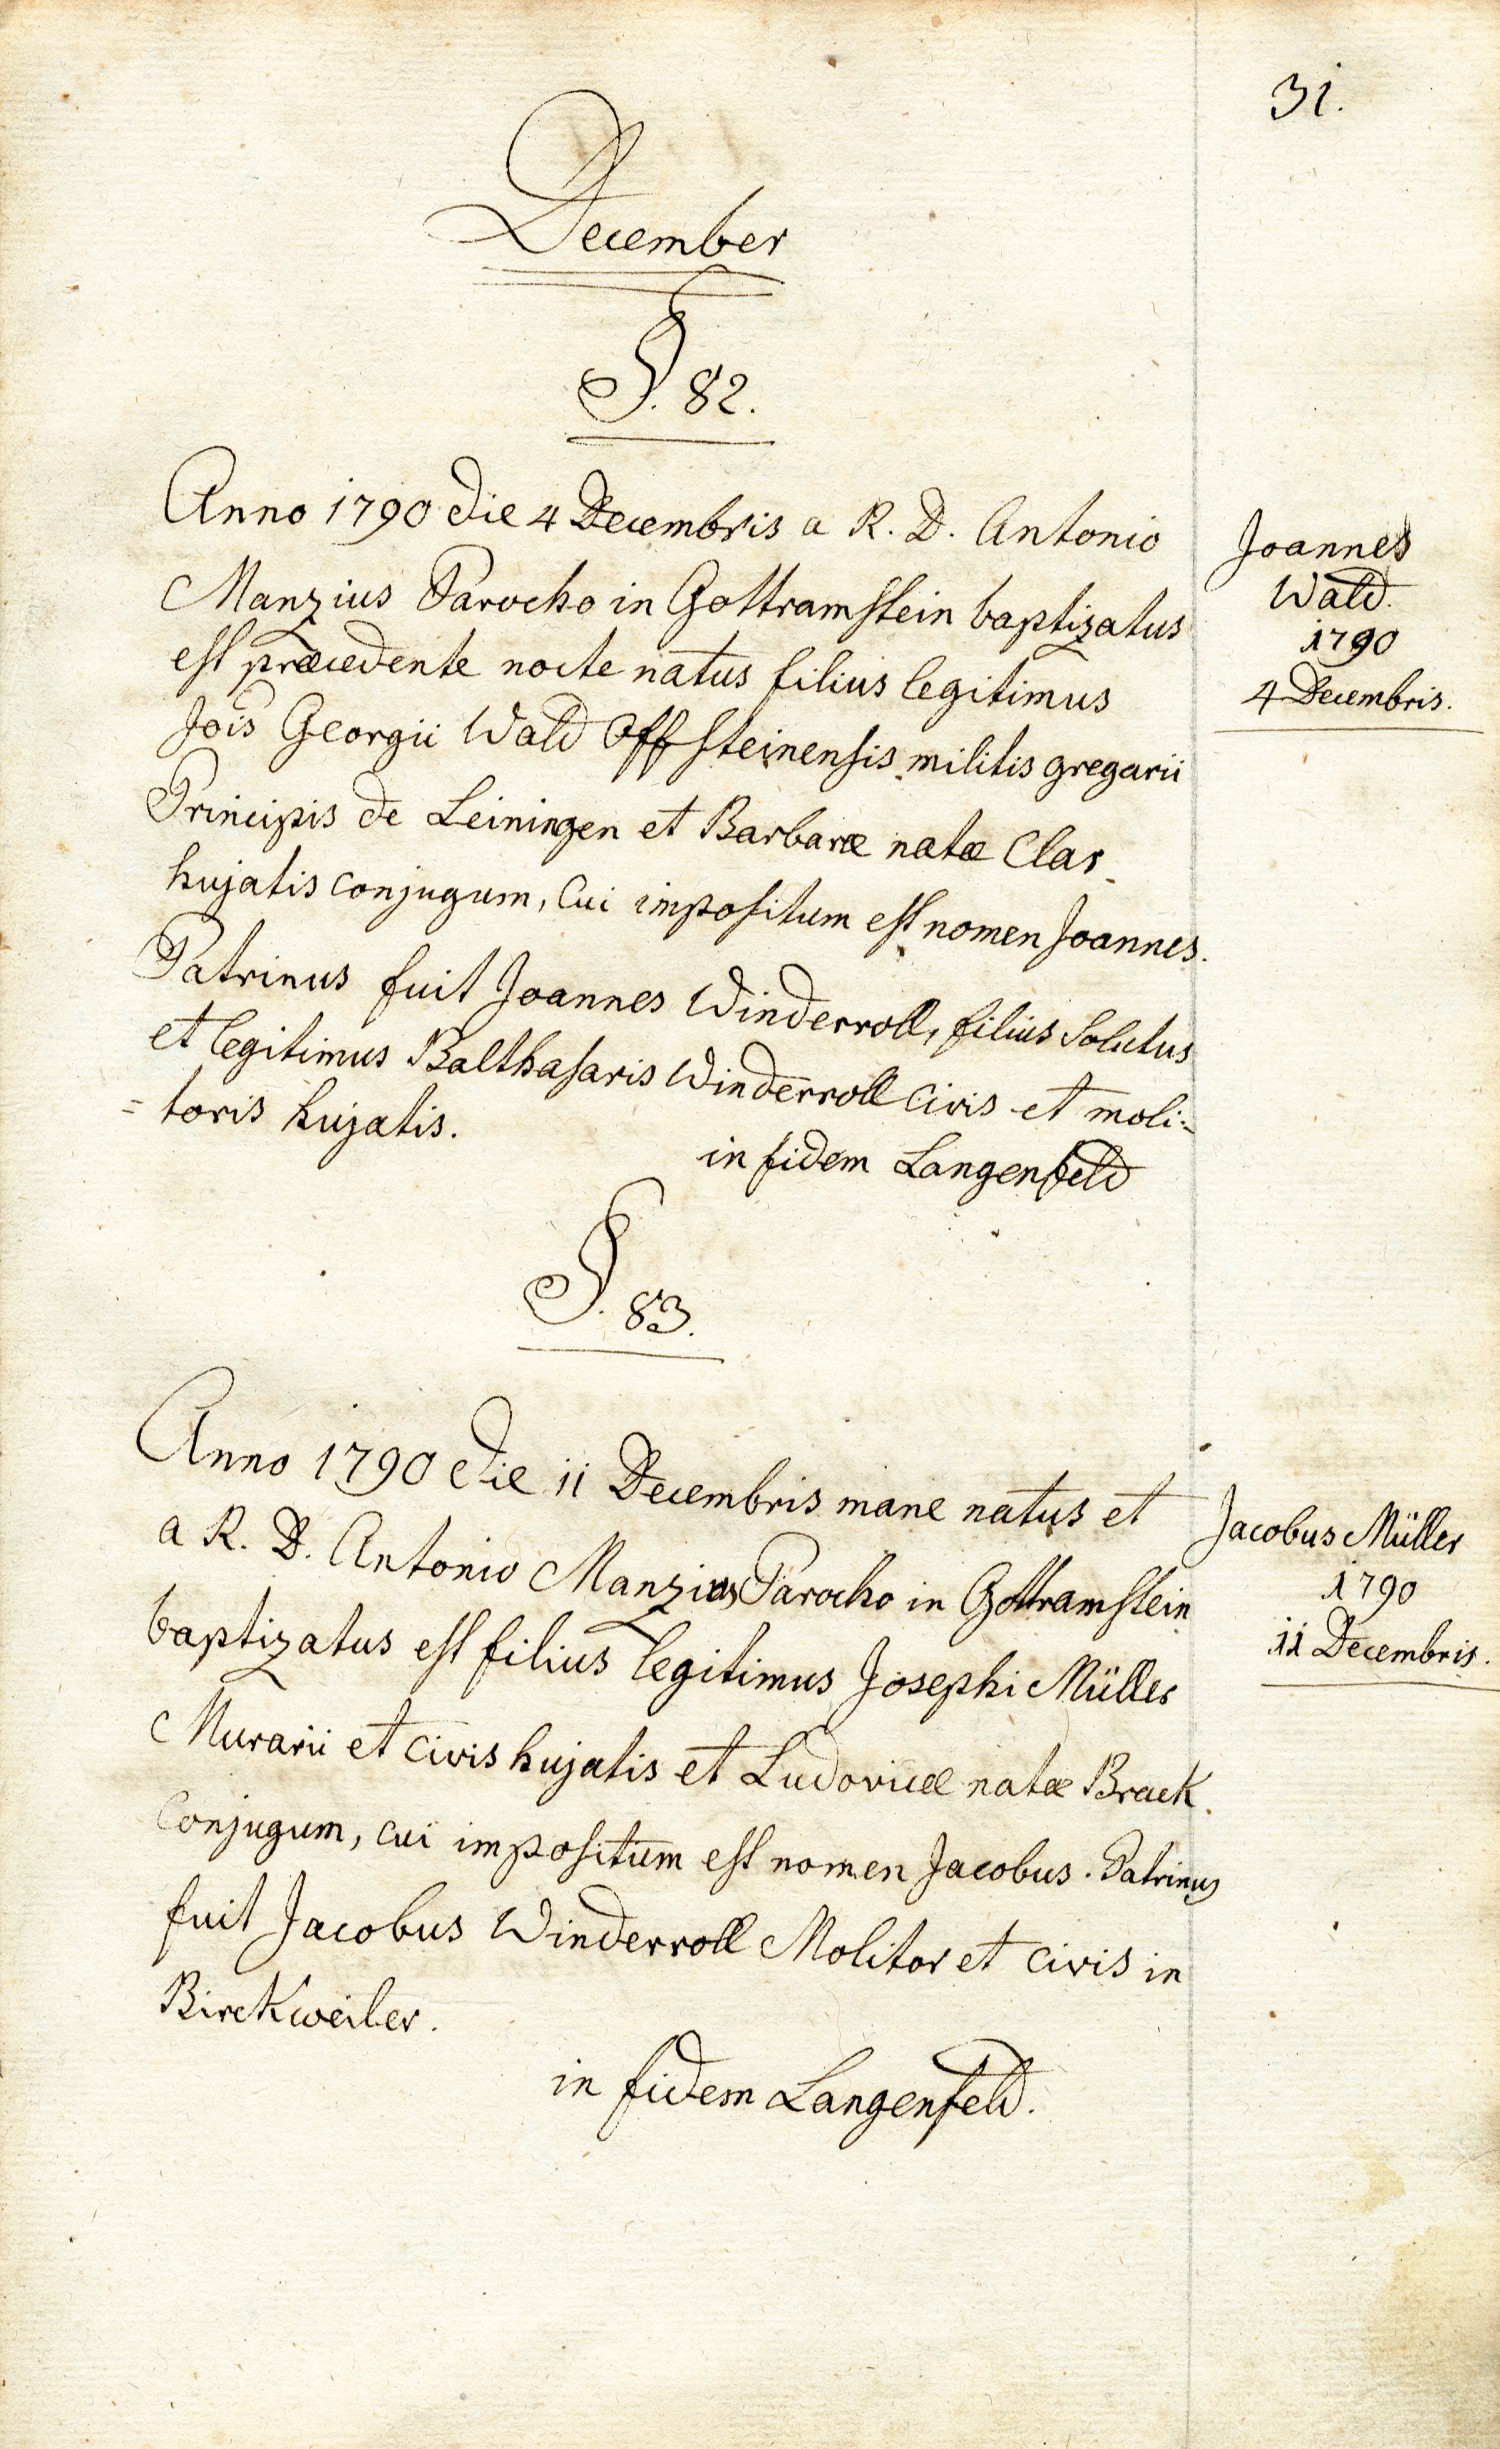 31.
December
§. 82.
Anno 1790 die 4 Decembris a R. D. Antonio
Manzius Parocho in Gottramstein baptizatus
est præcedente nocte natus filius legitimus
Jois Georgii Wald Offsteinensis militis gregarii
Principis de Leiningen et Barbaræ natæ Clar
hujatis conjugum, Cui impositum est nomen Joannes.
Patrinus fuit Joannes Winderroll, filius Solutus
et legitimus Balthasaris Winderroll civis et moli=
=toris hujatis.
in fidem Langenfeld
Joannes
Wald.
1790
4 Decembris.
§. 83.
Anno 1790 die ii Decembris mane natus et
a R. D. Antonio Manzius Parocho in Gottramstein
baptizatus est filius legitimus Josephi Müller
Murarii et civis hujatis et Ludovicæ natæ Brack
conjugum, cui impositum est nomen Jacobus. Patrinus
fuit Jacobus Winderroll Molitor et civis in
Birckweiler.
in fidem Langenfeld.
Jacobus Müller
1790
ii Decembris.